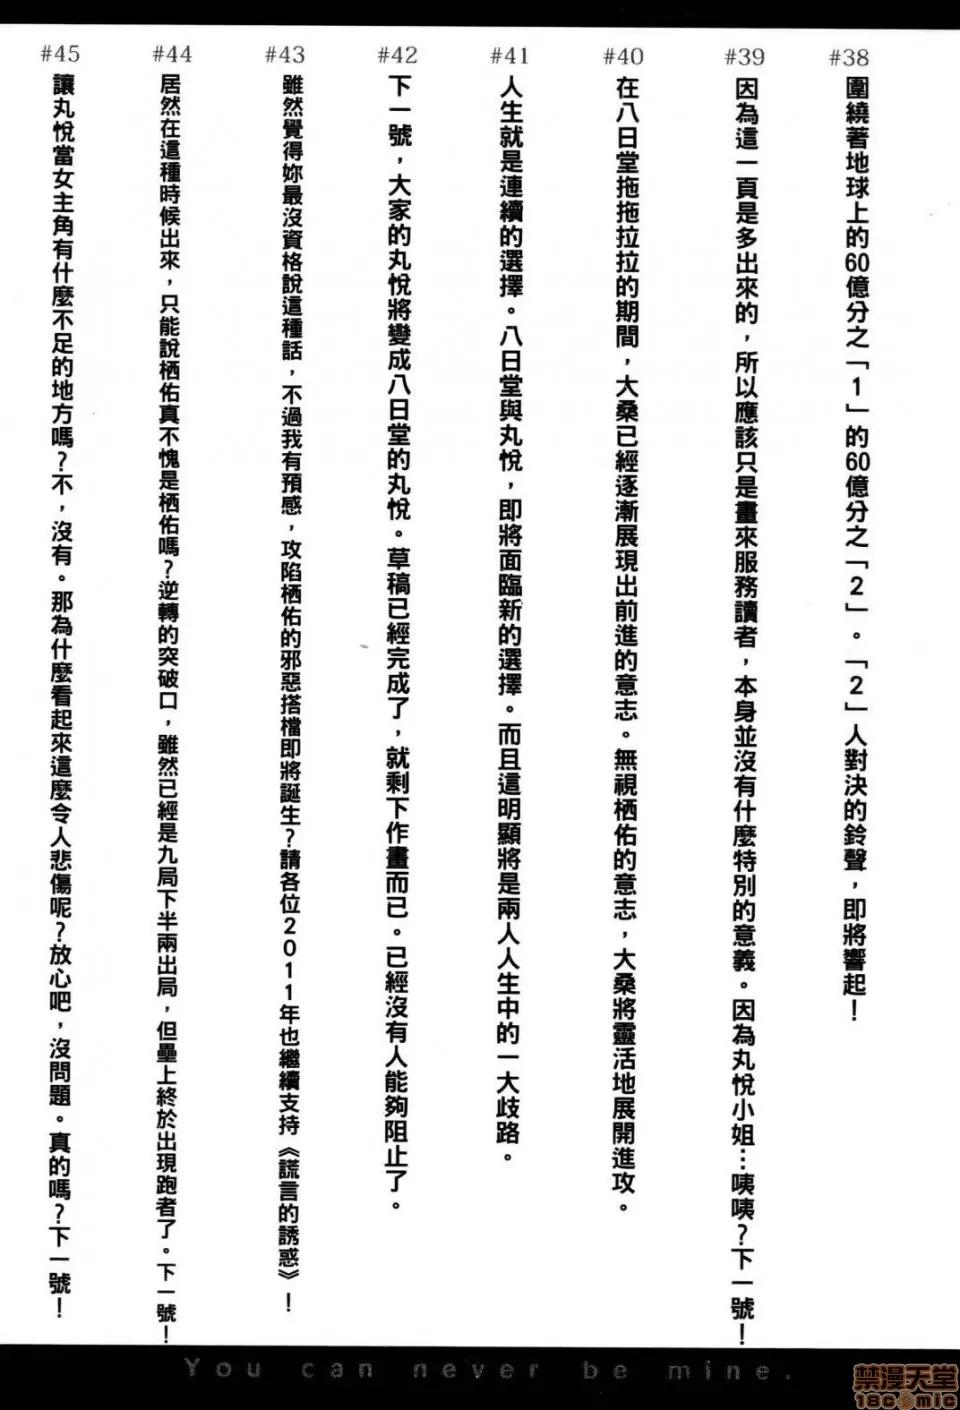 #38
圍繞著地球上的60億分之「1」的60億分之「2」。「2」人對決的鈴聲，即將響起！
#39
因為這一頁是多出來的，所以應該只是畫來服務讀者，本身並沒有什麼特別的意義。因為丸悅小姐…咦咦？下一號！
#40
在八日堂拖拖拉拉的期間，大桑已經逐漸展現出前進的意志。無視栖佑的意志，大桑將靈活地展開進攻。
#41
人生就是連續的選擇。八日堂與丸悅，即將面臨新的選擇。而且這明顯將是兩人人生中的一大歧路。
#42
下一號，大家的丸悅將變成八日堂的丸悅。草稿已經完成了，就剩下作畫而已。已經沒有人能夠阻止了。
#43
雖然覺得妳最沒資格說這種話，不過我有預感，攻陷栖佑的邪惡搭檔即將誕生？請各位2011年也繼續支持《謊言的誘惑》！
#44
居然在這種時候出來，只能說栖佑真不愧是栖佑嗎？逆轉的突破口，雖然已經是九局下半兩出局，但壘上終於出現跑者了。下一號！
#45
讓丸悅當女主角有什麼不足的地方嗎？不，沒有。那為什麼看起來這麼令人悲傷呢？放心吧，沒問題。真的嗎？下一號！
You can never be mine.
禁漫天堂
18comic